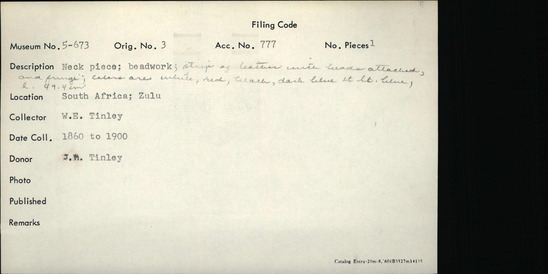 Filing Code
Museum No. 5-673 Orig. No. 3 Acc. No. 777 No. Pieces 1
Description Neck piece; beadwork; strip of leather with beads attached;
and fringe; colors are white, red, black, dark blue & lt. blue;
L. 49.4 cm
Location South Africa; Zulu
Collector W.E. Tinley
Date Coll. 1860 to 1900
Donor Tinley
Photo
Published
Remarks